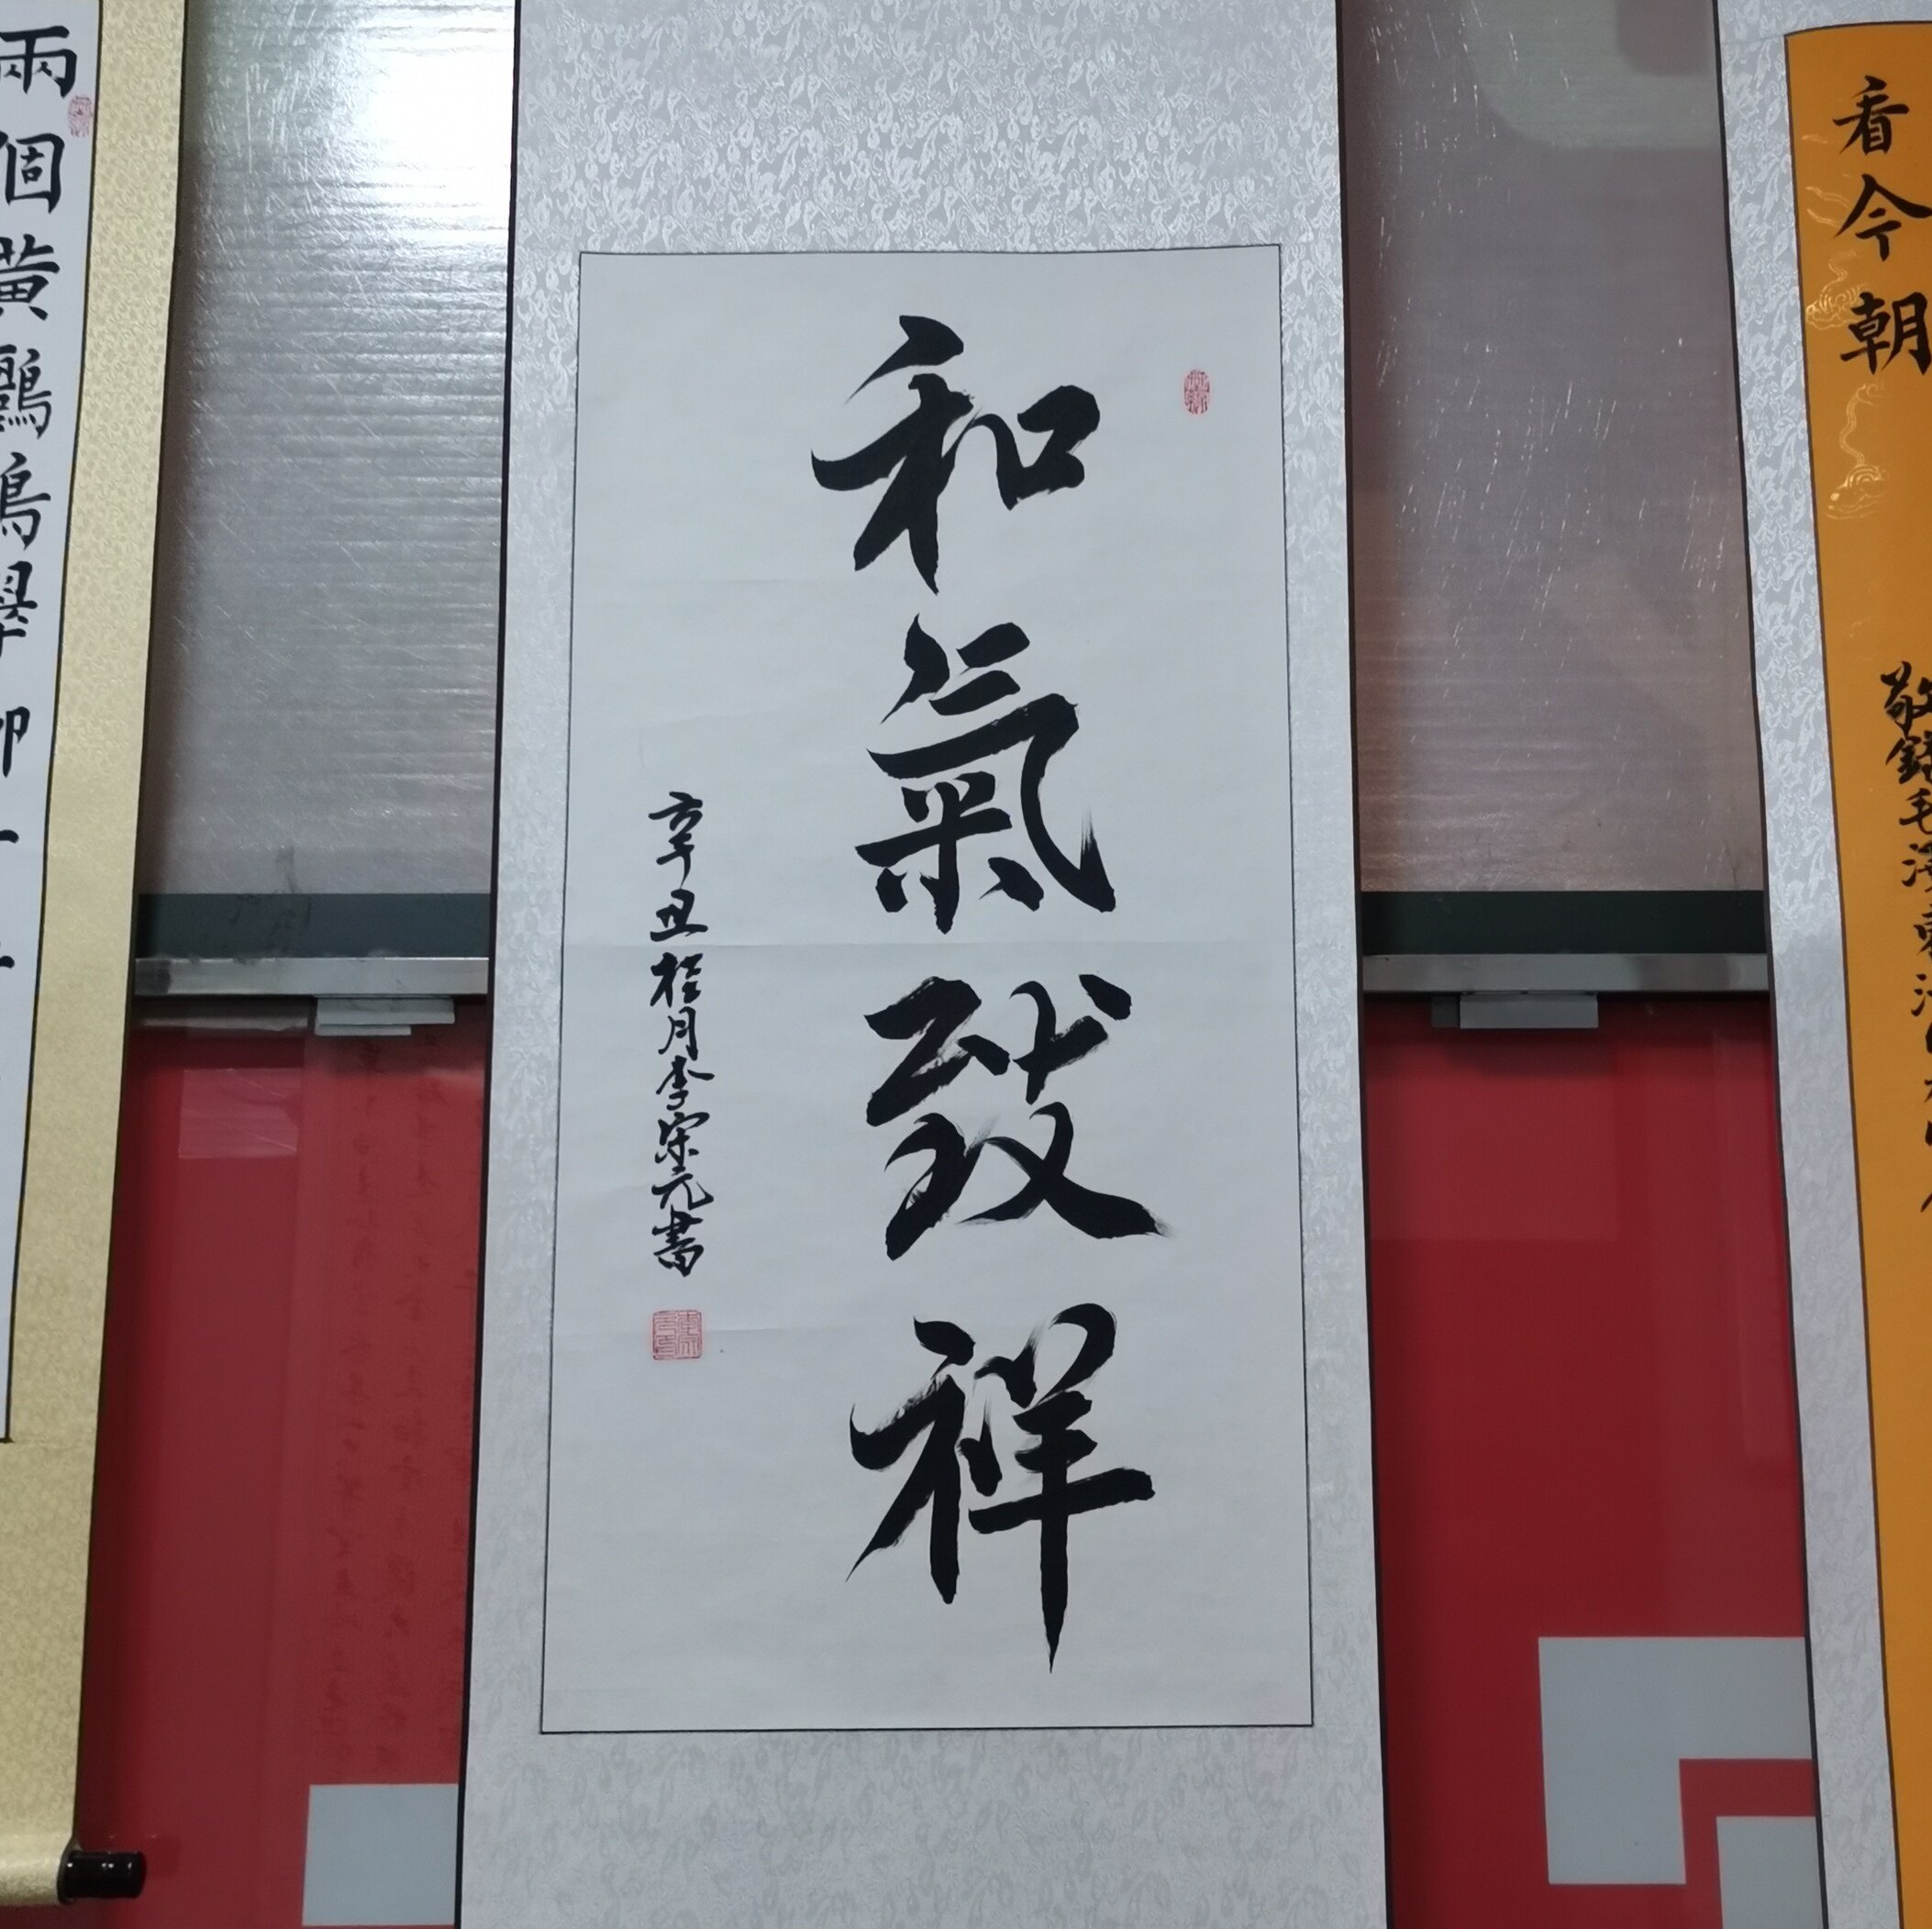 和氣致祥
辛丑桂月李宗元書
看今朝
敬錄毛澤東
兩個黃鸝鳴翠柳一